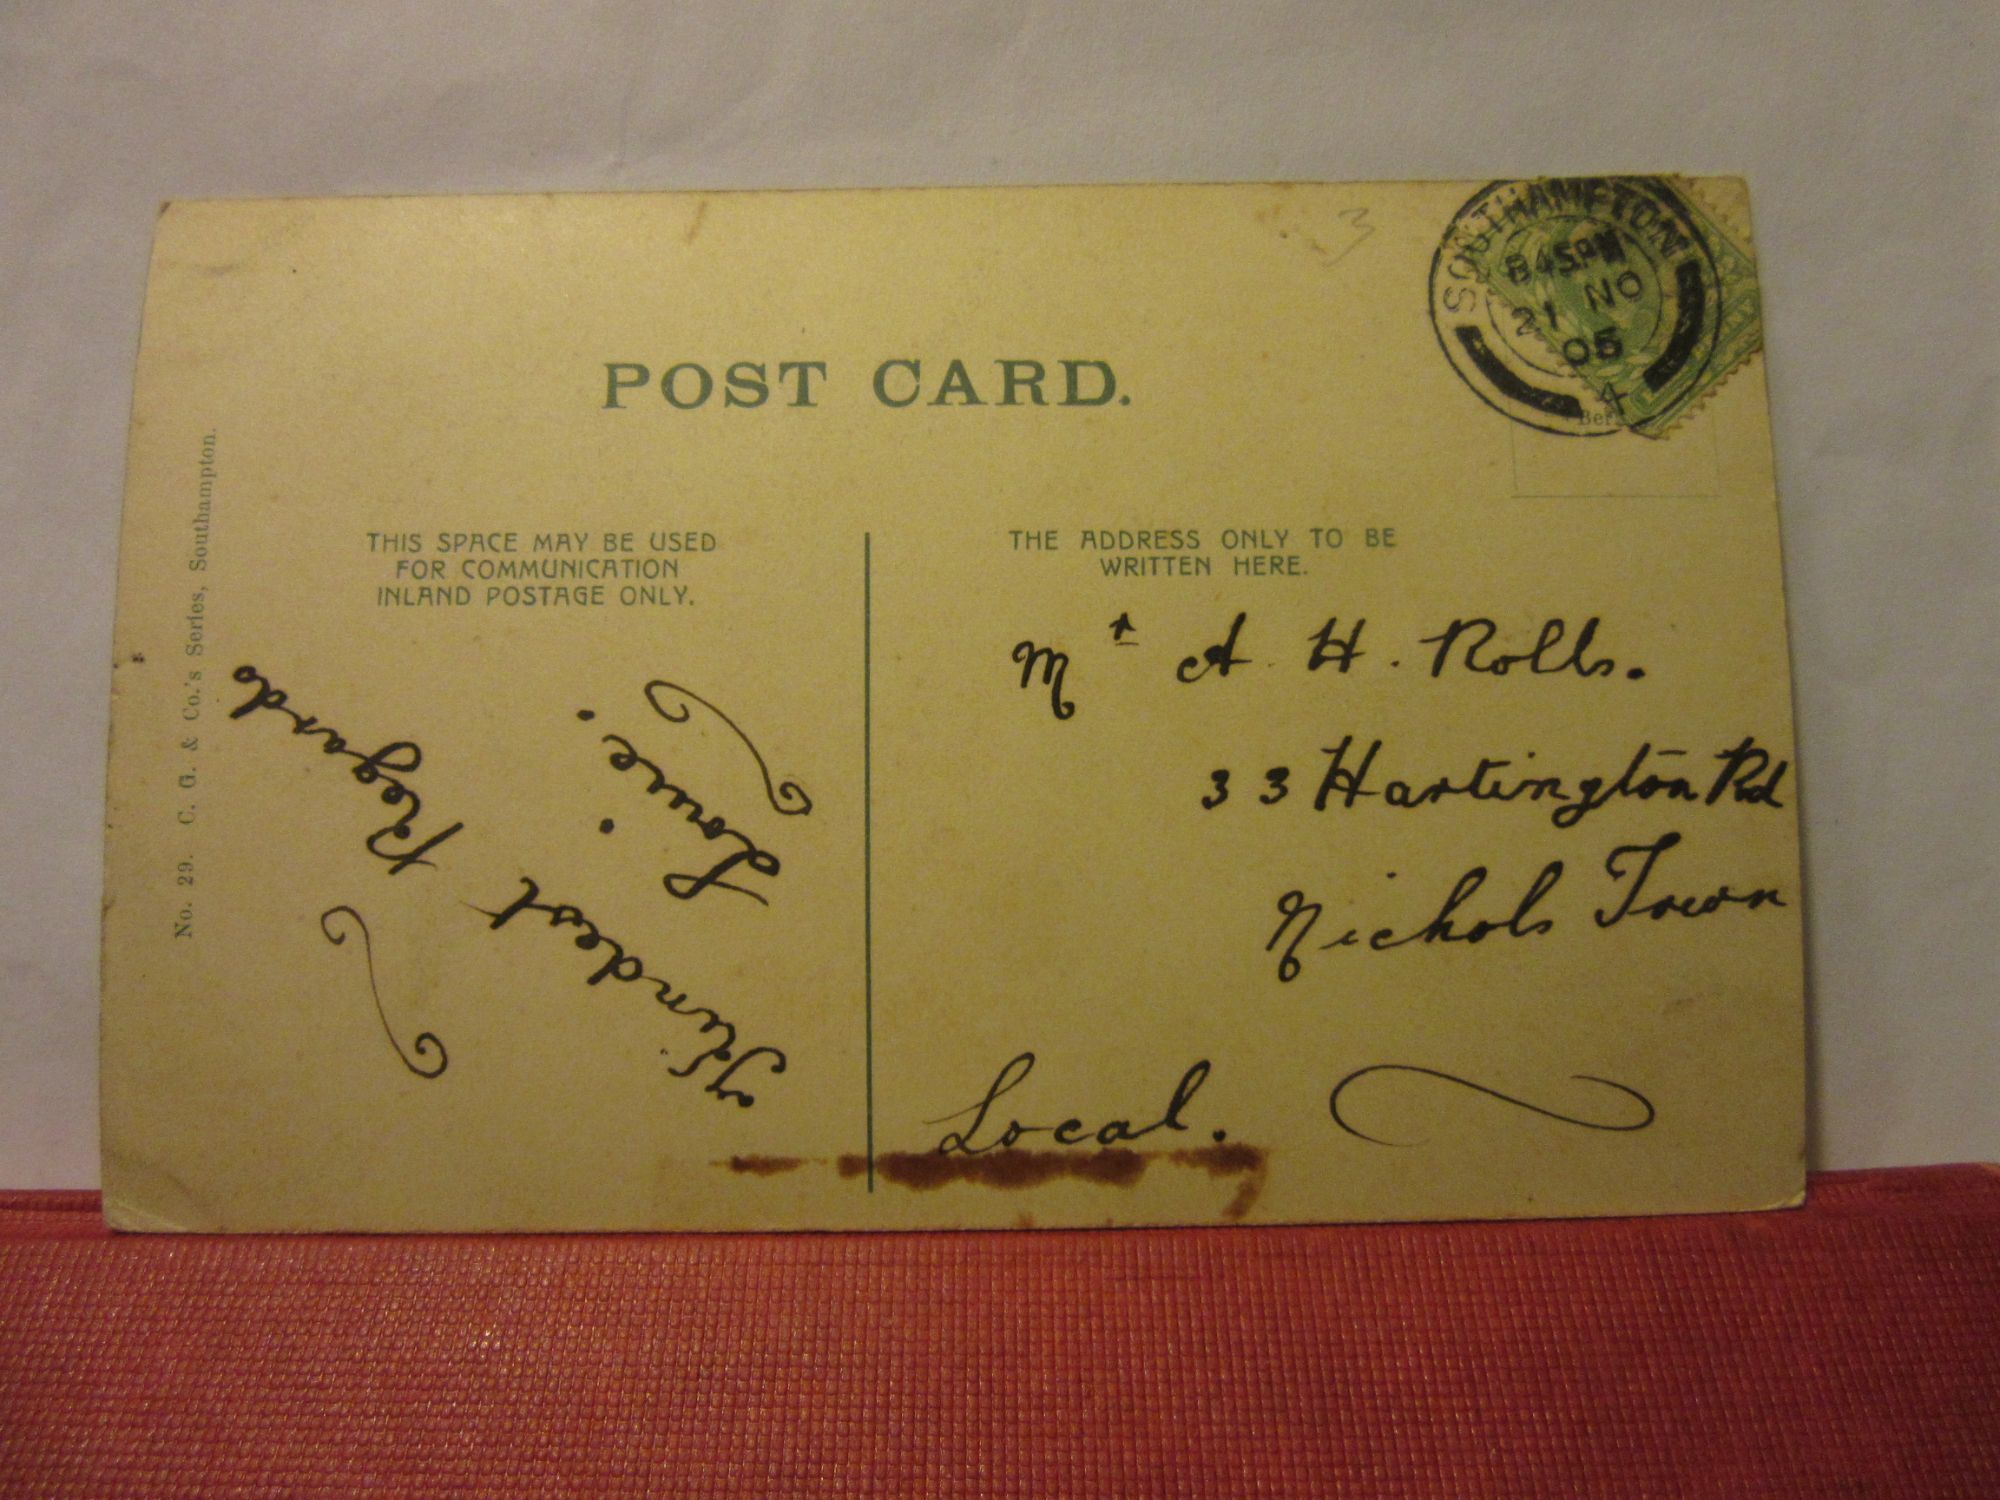 3
SOUTHAMPTON
8 45PM
21 NO
05
4
POST CARD.
THIS SPACE MAY BE USED
FOR COMMUNICATION
INLAND POSTAGE ONLY.
THE ADDRESS ONLY TO BE
WRITTEN HERE.
No. 29. C. G. & Co.'s Series, Southampton.
Kindest
Regards
Mr A. H. Rolls.
33 Hartington Rd
Nichols Town
Local.